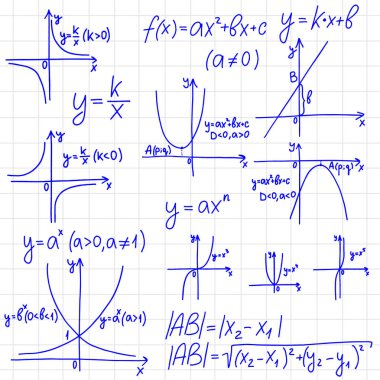 y
y=k/x (k>0)
x
f(x)=ax²+bx+c
(a≠0)
y=k·x+b
y
B
b
0
x
y=k/x
y
y=k/x (k<0)
x
y
y=ax²+bx+c
D<0, a>0
A(p;q)
0
x
y
x
0
A(p;q)
y=ax²+bx+c
D<0, a<0
y=axⁿ
y=aˣ (a>0, a≠1)
y
y=bˣ(0<b<1)
y=aˣ(a>1)
1
0
x
y
y=x³
x
y
y=x⁴
x
0
y
y=x⁵
x
|AB|=|x₂-x₁|
|AB|=√(x₂-x₁)²+(y₂-y₁)²